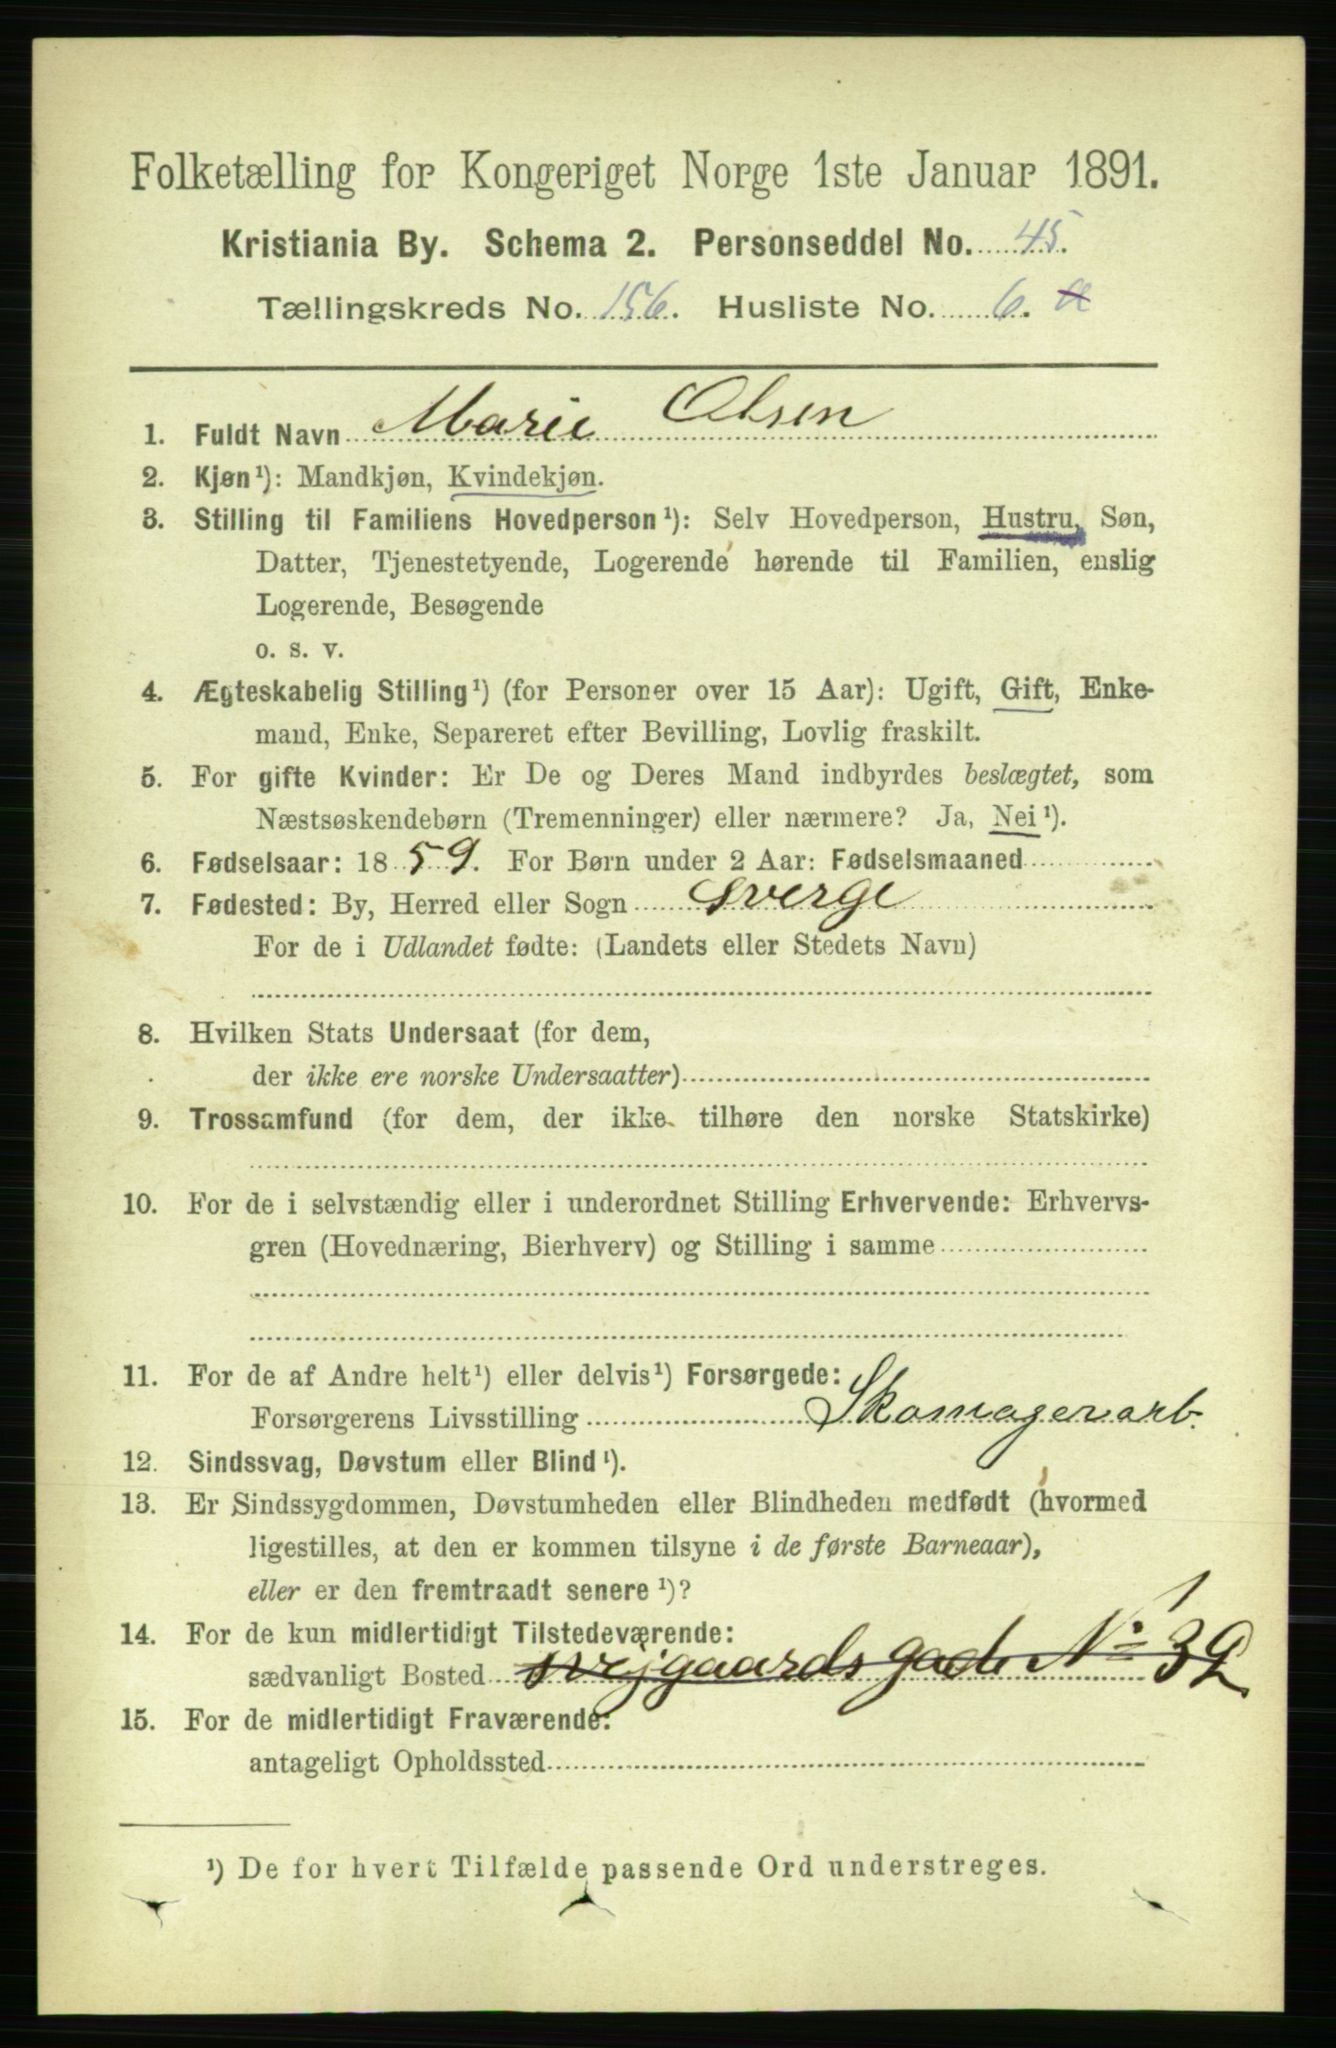 Folketælling for Kongeriget Norge 1ste Januar 1891.
Kristiania By. Schema 2. Personseddel No. 45.
Tællingskreds No. 156. Husliste No. 6. a
1. Fuldt Navn Marie Olsen
2. Kjøn¹): Mandkjøn, Kvindekjøn.
3. Stilling til Familiens Hovedperson¹): Selv Hovedperson, Hustru, Søn,
Datter, Tjenestetyende, Logerende hørende til Familien, enslig
Logerende, Besøgende
o. s. v.
4. Ægteskabelig Stilling¹) (for Personer over 15 Aar): Ugift, Gift, Enke-
mand, Enke, Separeret efter Bevilling, Lovlig fraskilt.
5. For gifte Kvinder: Er De og Deres Mand indbyrdes beslægtet, som
Næstsøskendebørn (Tremenninger) eller nærmere? Ja, Nei¹).
6. Fødselsaar: 1859. For Børn under 2 Aar: Fødselsmaaned
7. Fødested: By, Herred eller Sogn Sverge
For de i Udlandet fødte: (Landets eller Stedets Navn)
8. Hvilken Stats Undersaat (for dem,
der ikke ere norske Undersaatter)
9. Trossamfund (for dem, der ikke tilhøre den norske Statskirke)
10. For de i selvstændig eller i underordnet Stilling Erhvervende: Erhvervs-
gren (Hovednæring, Bierhverv) og Stilling i samme
11. For de af Andre helt¹) eller delvis¹) Forsørgede:
Forsørgerens Livsstilling Skomagerarb.
12. Sindssvag, Døvstum eller Blind¹).
13. Er Sindssygdommen, Døvstumheden eller Blindheden medfødt (hvormed
ligestilles, at den er kommen tilsyne i de første Barneaar),
eller er den fremtraadt senere¹)?
14. For de kun midlertidigt Tilstedeværende:
sædvanligt Bosted svejgaards gade No 39
15. For de midlertidigt Fraværende:
antageligt Opholdssted
¹) De for hvert Tilfælde passende Ord understreges.